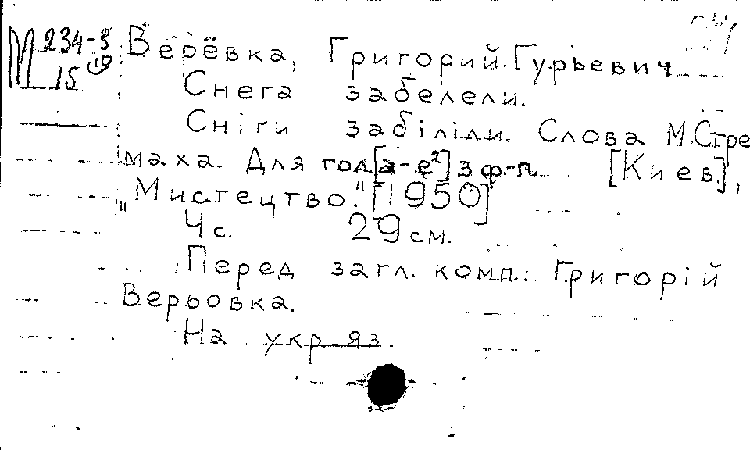 М 234-3 Верёвка, Григорий Гурьевич
15 Снега забелели.
Сніги забіліли. Слова М. Стре
маха. Для гол. [а-е²] з ф-п. [Киев],
"Мистецтво". [1950]
4 с. 29 см.
Перед загл. комп.: Григорій
Верьовка.
На укр. яз.